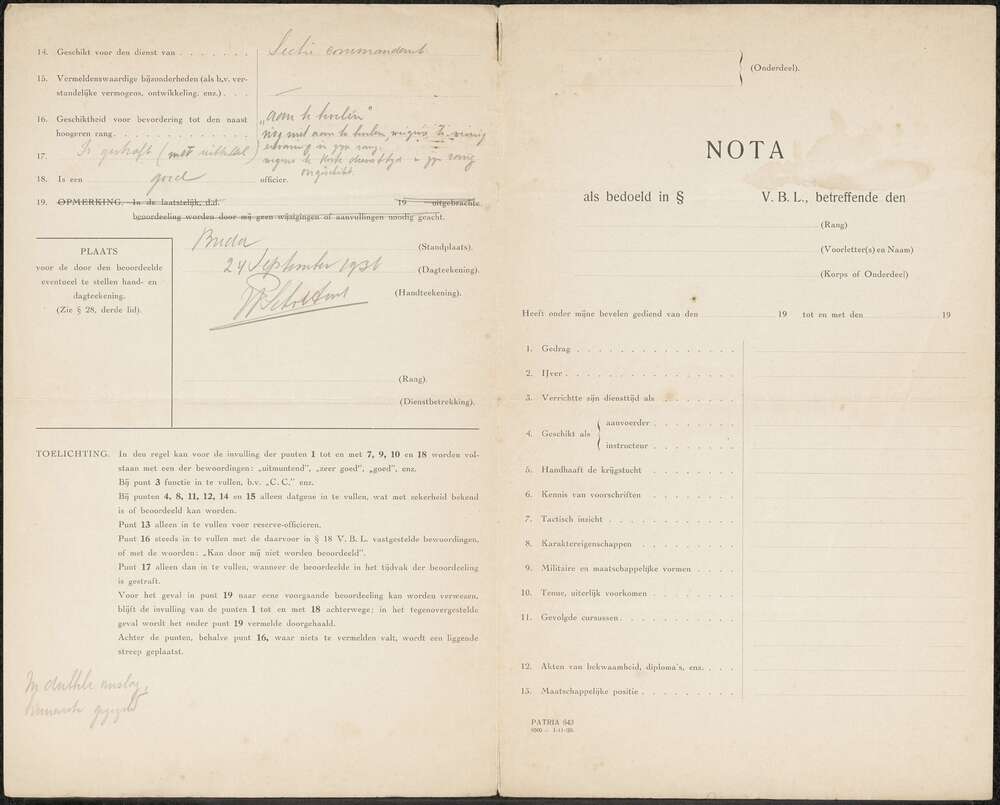 14. Geschikt voor den dienst van . . . . . . . Sectie commandant
15. Vermeldenswaardige bijzonderheden (als b.v. ver-
standelijke vermogens, ontwikkeling. enz.) . . . —
16. Geschiktheid voor bevordering tot den naast
hoogeren rang. . . . . . . . . . . . . . .
„aan te bevelen"
nog niet aan te bevelen, wegens te weinig
ervaring in zijn rang.
wegens te korte diensttijd in zijn rang
ongeschikt.
17. Is gestraft (met uitstel)
18. Is een goed officier.
19. OPMERKING. In de laatstelijk, d.d. 19 uitgebrachte
beoordeeling worden door mij geen wijzigingen of aanvullingen noodig geacht.
PLAATS
voor de door den beoordeelde
eventueel te stellen hand- en
dagteekening.
(Zie § 28, derde lid).
Breda (Standplaats).
24 September 1936 (Dagteekening).
(Handteekening).
(Rang).
(Dienstbetrekking).
TOELICHTING. In den regel kan voor de invulling der punten 1 tot en met 7, 9, 10 en 18 worden vol-
staan met een der bewoordingen: „uitmuntend", „zeer goed", „goed", enz.
Bij punt 3 functie in te vullen, b.v. „C. C." enz.
Bij punten 4, 8, 11, 12, 14 en 15 alleen datgene in te vullen, wat met zekerheid bekend
is of beoordeeld kan worden.
Punt 13 alleen in te vullen voor reserve-officieren.
Punt 16 steeds in te vullen met de daarvoor in § 18 V. B. L. vastgestelde bewoordingen,
of met de woorden: „Kan door mij niet worden beoordeeld".
Punt 17 alleen dan in te vullen, wanneer de beoordeelde in het tijdvak der beoordeeling
is gestraft.
Voor het geval in punt 19 naar eene voorgaande beoordeeling kan worden verwezen,
blijft de invulling van de punten 1 tot en met 18 achterwege; in het tegenovergestelde
geval wordt het onder punt 19 vermelde doorgehaald.
Achter de punten, behalve punt 16, waar niets te vermelden valt, wordt een liggende
streep geplaatst.
(Onderdeel).
NOTA
als bedoeld in § V. B. L., betreffende den
(Rang)
(Voorletter(s) en Naam)
(Korps of Onderdeel)
Heeft onder mijne bevelen gediend van den 19 tot en met den 19
1. Gedrag . . . . . . . . . . . .
2. IJver . . . . . . . . . . . . .
3. Verrichtte zijn diensttijd als . . . . . .
4. Geschikt als { aanvoerder . . . . . . .
instructeur . . . . . . .
5. Handhaaft de krijgstucht . . . . . . .
6. Kennis van voorschriften . . . . . . .
7. Tactisch inzicht . . . . . . . . . .
8. Karaktereigenschappen . . . . . . .
9. Militaire en maatschappelijke vormen . . . .
10. Tenue, uiterlijk voorkomen . . . . . . .
11. Gevolgde cursussen . . . . . . . . .
12. Akten van bekwaamheid, diploma's, enz. . . .
13. Maatschappelijke positie . . . . . . .
PATRIA 643